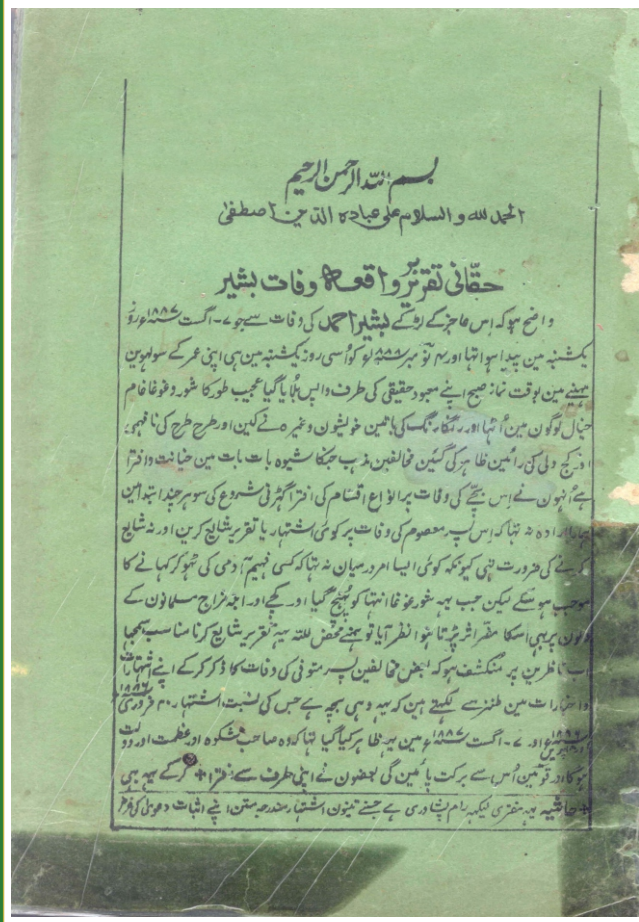 بسم اللہ الرحمن الرحیم
الحمد للہ والسلام علی عبادہ الذین اصطفی
حقانی تقریر بر واقعہ وفات بشیر
واضح ہو کہ اس عاجز کے لڑکے بشیر احمد کی وفات سے جو ۷۔ اگست ۱۸۸۷ء روز
یکشنبہ مین پیدا ہوا تہا اور ۴ نومبر ۱۸۸۸ء کو اُسی روز یکشنبہ مین ہی اپنی عمر کے سولہوین
مہینے مین بوقت نماز صبح اپنے معبود حقیقی کی طرف واپس بُلایا گیا عجیب طور کا شور و غوغا خام
خیال لوگون مین اُٹہا اور رنگارنگ کی باتین خویشون وغیرہ نے کین اور طرح طرح کی نافہمی
اور کج دلی کی رائین ظاہر کی گئین مخالفین مذہب جنکا شیوہ بات بات مین خیانت و افترا
ہے اُنہون نے اس بچے کی وفات پر انواع اقسام کی افترا گھڑنی شروع کی سو ہر چند ابتدا مین
ہمارا ارادہ نہ تہا کہ اس پسر معصوم کی وفات پر کوئی اشتہار یا تقریر شایع کرین اور نہ شایع
کرنے کی ضرورت تہی کیونکہ کوئی ایسا امر درمیان نہ تہا کہ کسی فہیم آدمی کی ٹھوکر کہانے کا
موجب ہو سکے لیکن جب یہہ شور غوغا انتہا کو پہنچ گیا اور کچے اور ابلہ مزاج مسلمانون کے
دلون پر بہی اسکا مضر اثر پڑتا ہوا نظر آیا تو ہمنے محض للہ یہہ تقریر شایع کرنا مناسب سمجہا
اب ناظرین پر منکشف ہو کہ بعض مخالفین پسر متوفی کی وفات کا ذکر کر کے اپنے اشتہارات
و اخبارات مین طنز سے لکہتے ہین کہ یہہ وہی بچہ ہے جس کی نسبت اشتہار ۲۰ فروری ۱۸۸۶ء
۸ اپریل ۱۸۸۶ء اور ۷۔ اگست ۱۸۸۷ء مین یہہ ظاہر کیا گیا تہا کہ وہ صاحب شکوہ اور عظمت اور دولت
ہوگا اور قومین اُس سے برکت پائین گی بعضون نے اپنی طرف سے افترا + کر کے یہہ بہی
+ حاشیہ یہہ مفتری لیکہرام پشاوری ہے جسنے تینون اشتہار مندرجہ متن اپنے اثبات دعویٰ کی غرض